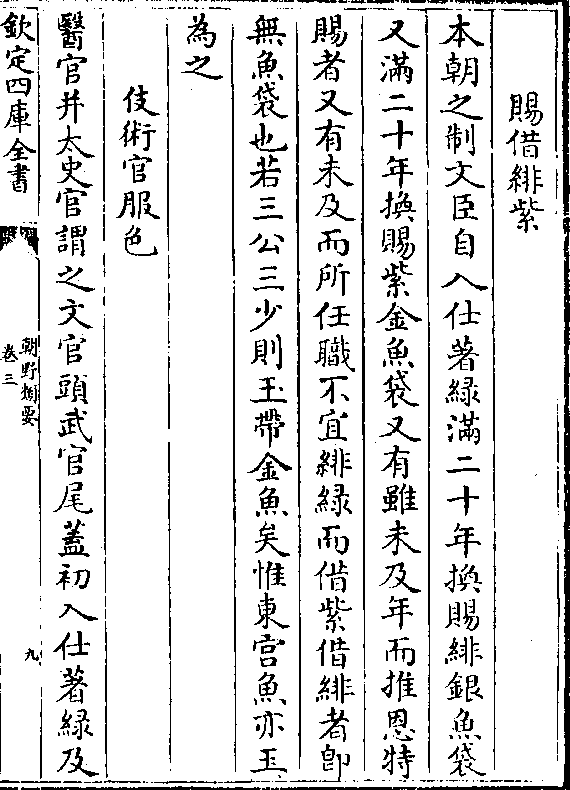 賜借緋紫
本朝之制文臣自入仕著緑滿二十年換賜緋銀魚袋
又滿二十年換賜紫金魚袋又有雖未及年而推恩特
賜者又有未及而所任職不宜緋緑而借紫借緋者即
無魚袋也若三公三少則玉帶金魚矣惟東宫魚亦玉
為之
伎術官服色
醫官并太史官謂之文官頭武官尾蓋初入仕著緑及
欽定四庫全書
朝野類要
卷三
九